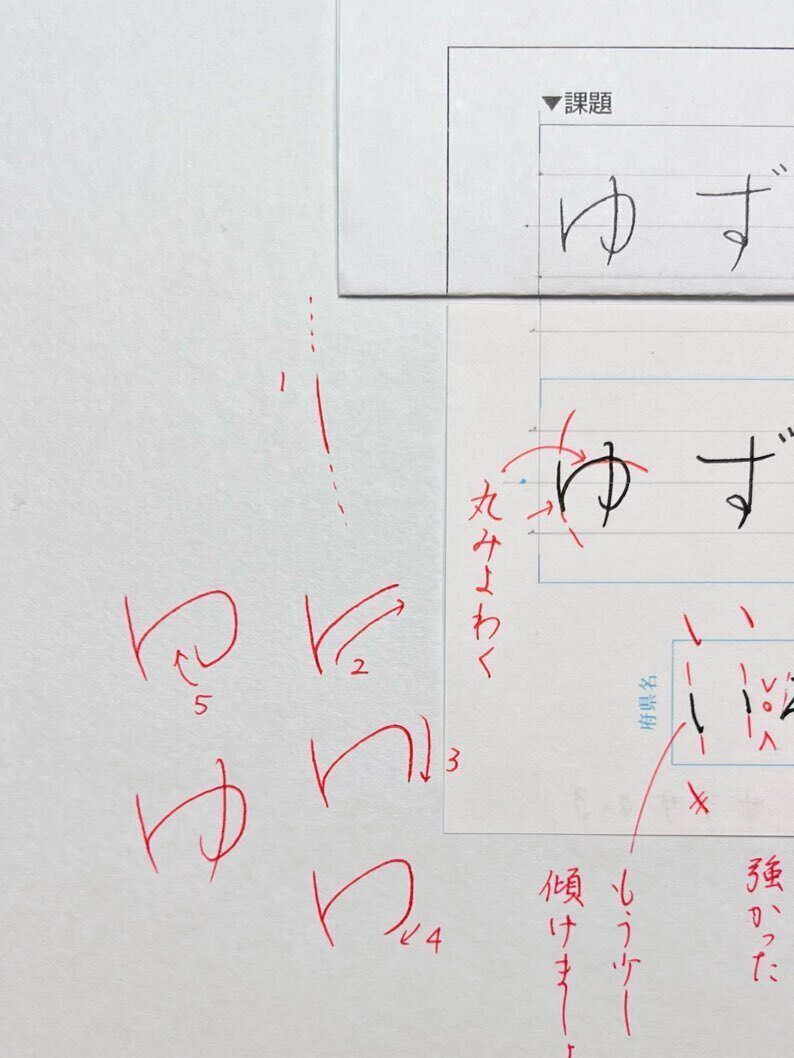 ▼課題
ゆず
ゆず
丸みよわく
府県名
い
1
2
3
4
5
ゆ
強かった
もう少し
傾けましょ